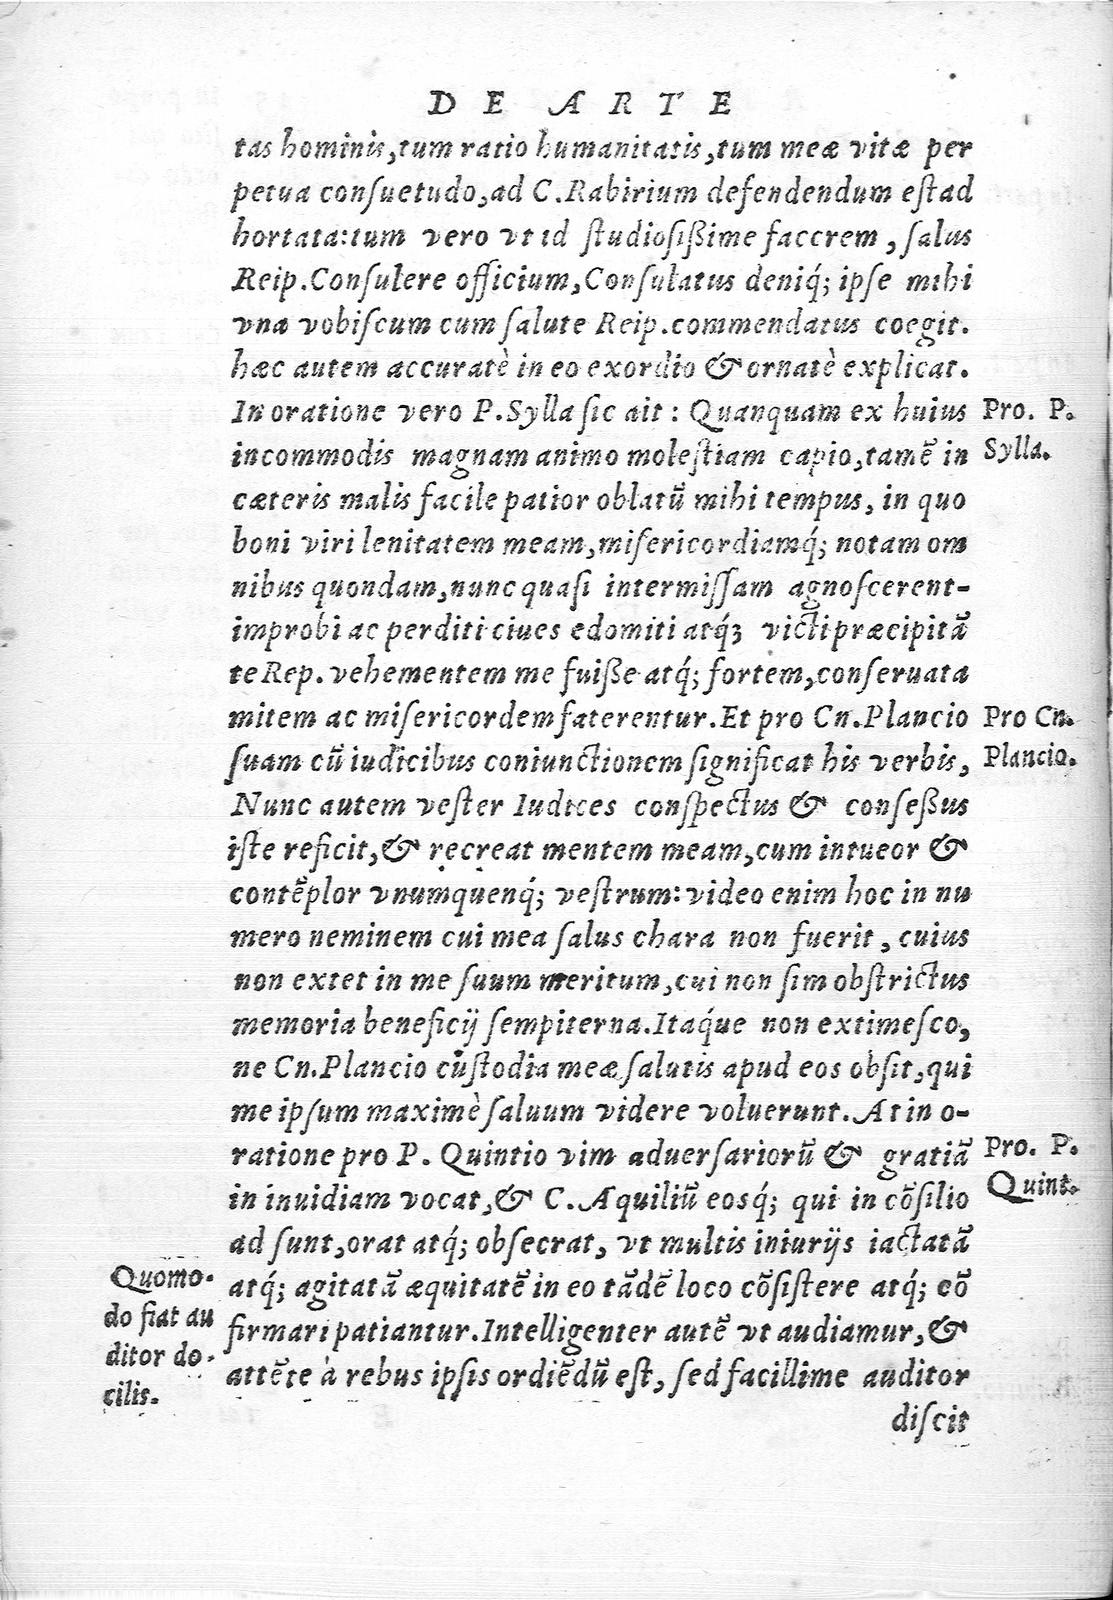 DE ARTE
tas hominis,tum ratio humanitatis,tum meæ vitæ per
petua conſuetudo,ad C.Rabirium defendendum eſt ad
hortata:tum vero vt id ſtudioſißime faccrem , ſalus
Reip.Conſulere officium,Conſulatus deniq́; ipſe mihi
vna vobiſcum cum ſalute Reip.commendatus coegit.
hæc autem accuratè in eo exordio & ornatè explicat.
In oratione vero P.Sylla ſic ait : Quanquam ex huius
Pro. P.
Sylla.
incommodis magnam animo moleſtiam capio,tamẽ in
cæteris malis facile patior oblatũ mihi tempus, in quo
boni viri lenitatem meam,miſericordiamq́; notam om
nibus quondam,nunc quaſi intermiſſam agnoſcerent-
improbi ac perditi ciues edomiti atq́; victi præcipitã
te Rep. vehementem me fuiße atq́; fortem,conſeruata
mitem ac miſericordem faterentur.Et pro Cn.Plancio
Pro Cn.
Plancio.
ſuam cũ iudicibus coniunctionem ſignificat his verbis,
Nunc autem veſter Iudices conſpectus & conſeßus
iſte reficit,& recreat mentem meam,cum intueor &
contẽplor vnumquenq́; veſtrum:video enim hoc in nu
mero neminem cui mea ſalus chara non fuerit , cuius
non extet in me ſuum meritum,cui non ſim obſtrictus
memoria beneficij ſempiterna.Itaq́ue non extimeſco,
ne Cn.Plancio cuſtodia meæ ſalutis apud eos obſit,qui
me ipſum maximè ſaluum videre voluerunt. At in o-
ratione pro P. Quintio vim aduerſariorũ & gratiã
Pro. P.
Quint.
in inuidiam vocat,& C. Aquiliũ eosq́; qui in cõſilio
ad ſunt,orat atq́; obſecrat, vt multis iniurijs iactatã
atq́; agitatã æquitatẽ in eo tãdẽ loco cõſiſtere atq́; cõ
firmari patiantur.Intelligenter autẽ vt audiamur,&
attẽte à rebus ipſis ordiẽdũ eſt, ſed facillime auditor
Quomo-
do fiat au
ditor do-
cilis.
diſcit